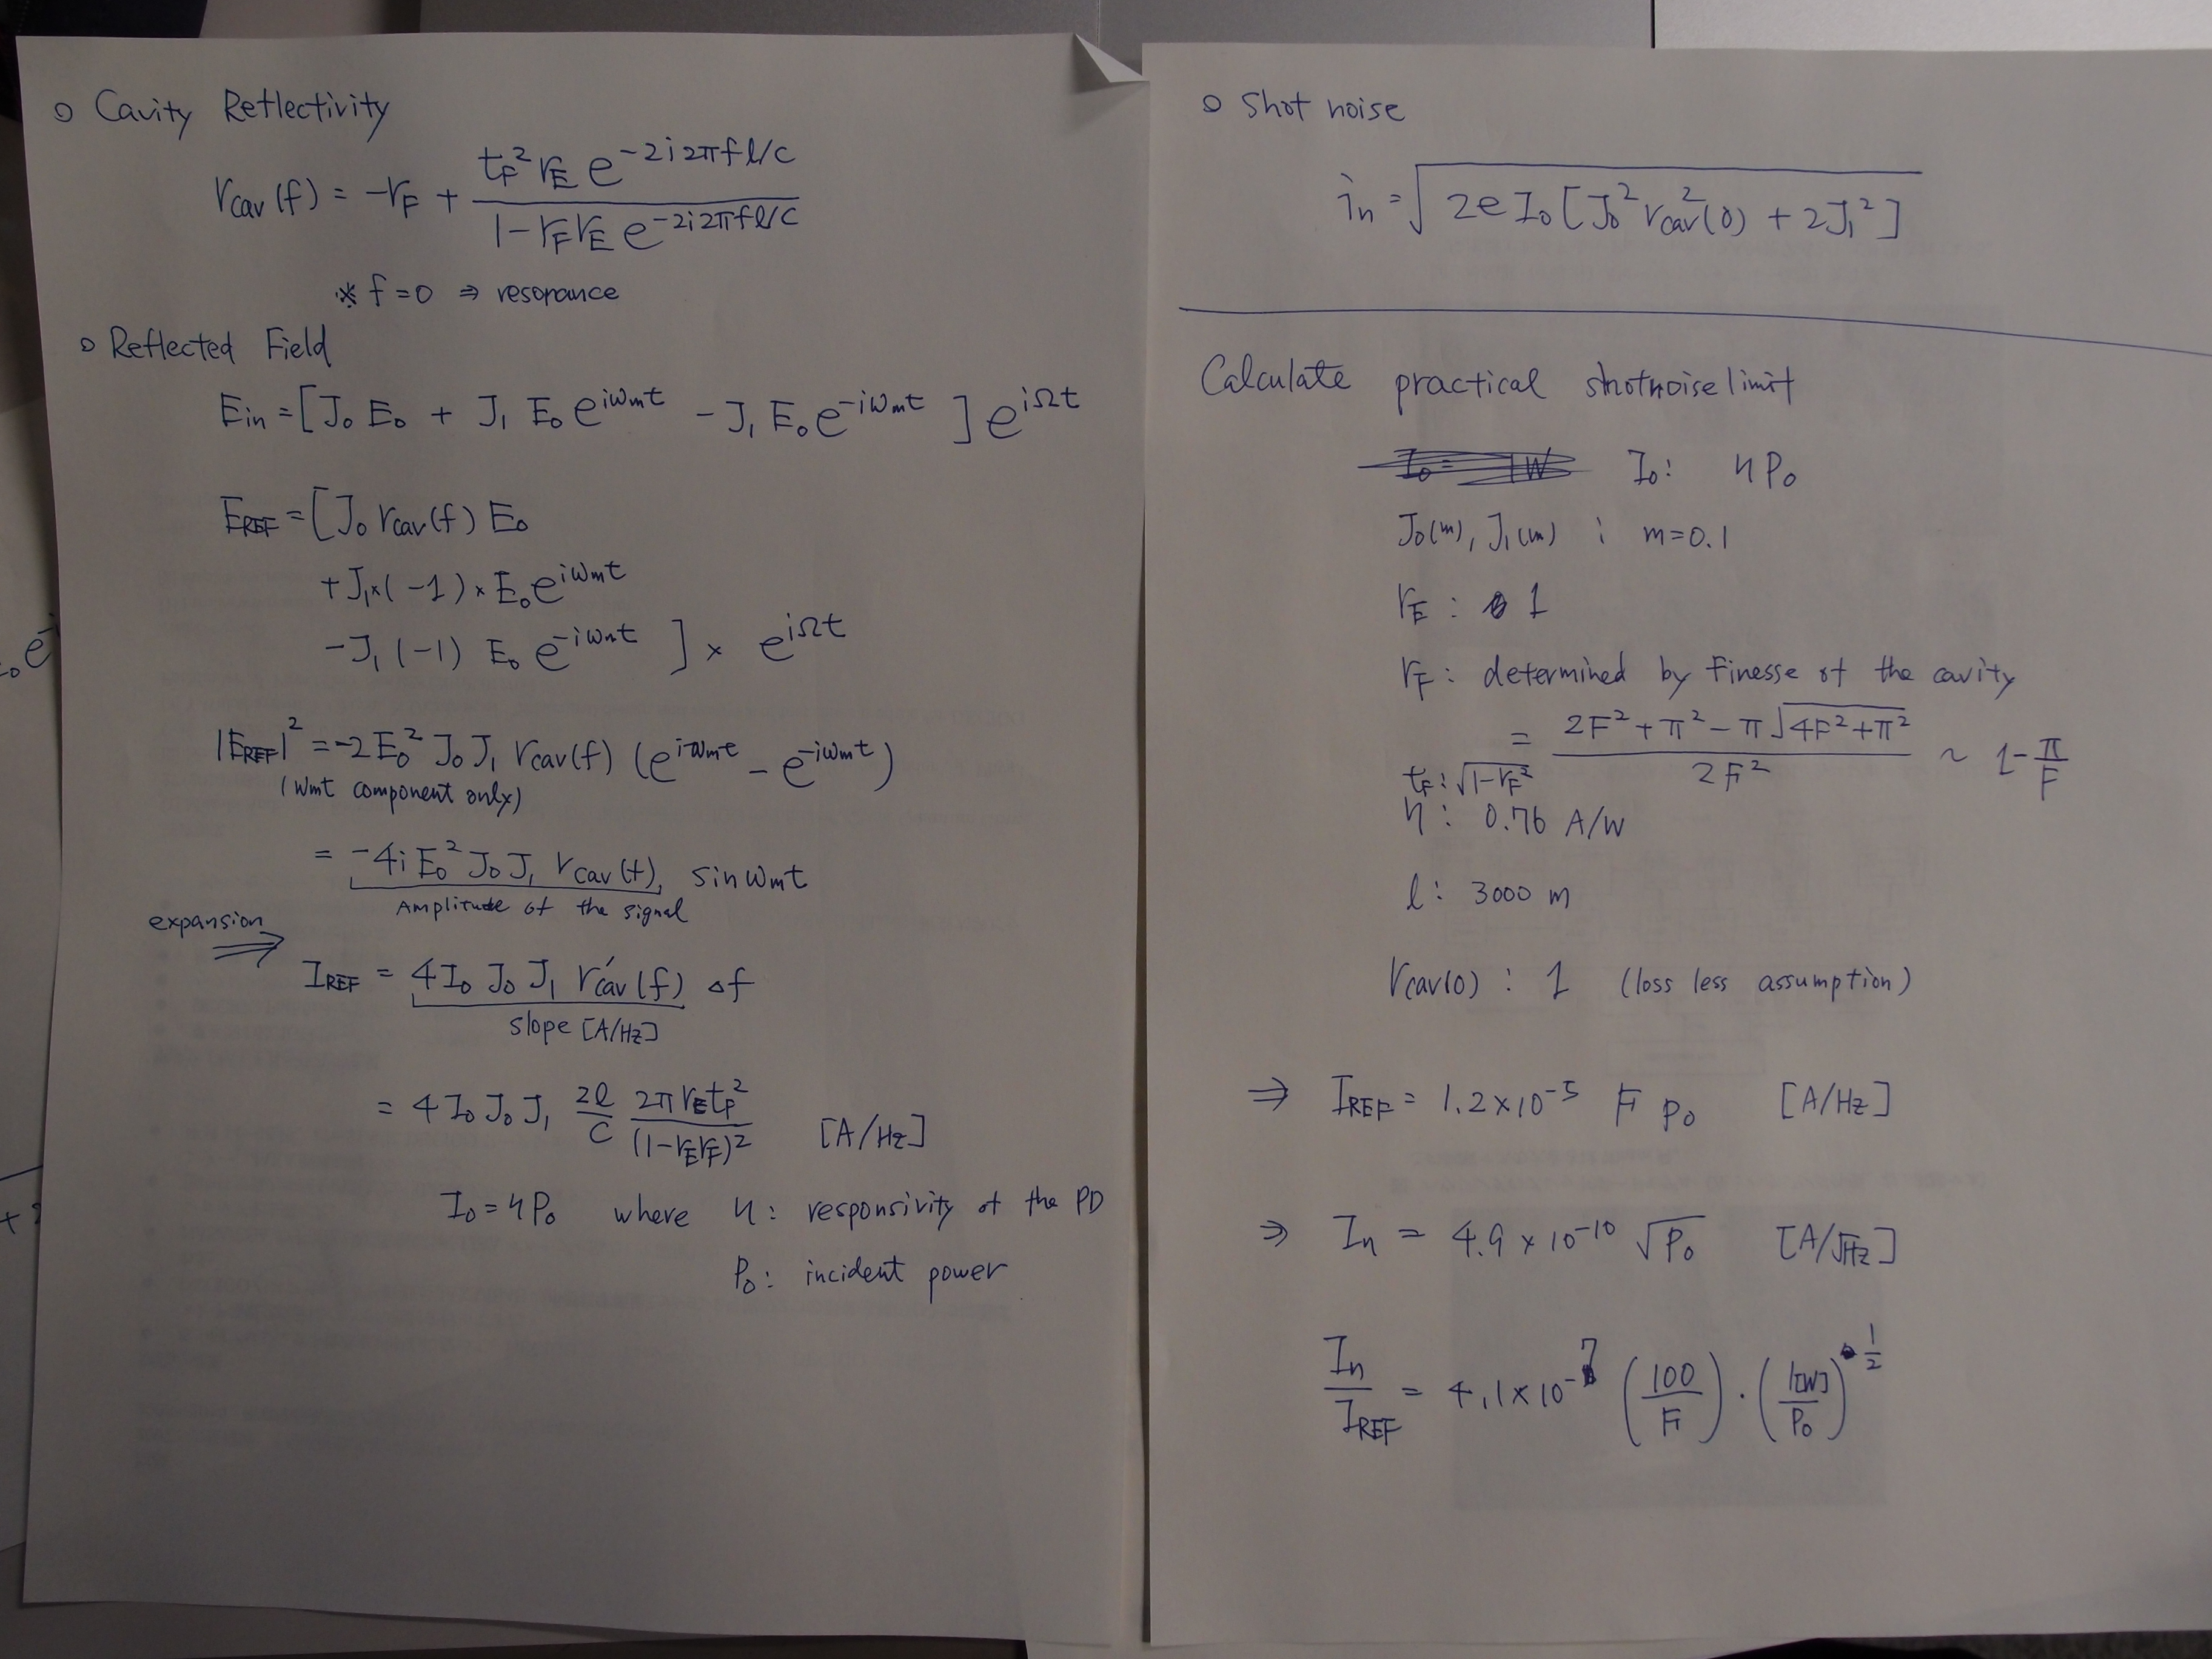 o Cavity Reflectivity
r_cav(f) = -r_F + \frac{t_F^2 r_E e^{-2i2πfl/c}}{1 - r_F r_E e^{-2i2πfl/c}}
※ f=0 ⇒ resonance
o Reflected Field
E_in = [J_0 E_0 + J_1 E_0 e^{iω_m t} - J_1 E_0 e^{-iω_m t}] e^{iΩt}
E_REF = [J_0 r_cav(f) E_0
+ J_1 × (-1) × E_0 e^{iω_m t}
- J_1 (-1) E_0 e^{-iω_m t}] × e^{iΩt}
|E_REF|^2 = -2 E_0^2 J_0 J_1 r_cav(f) (e^{iω_m t} - e^{-iω_m t})
(ω_m t component only)
= -4i E_0^2 J_0 J_1 r_cav(f) sin ω_m t
Amplitude of the signal
expansion
⇒ I_REF = 4 I_0 J_0 J_1 r'_cav(f) Δf
slope [A/Hz]
= 4 I_0 J_0 J_1 \frac{2l}{c} \frac{2π r_E t_F^2}{(1 - r_E r_F)^2} [A/Hz]
I_0 = η P_0 where η: responsivity of the PD
P_0: incident power
o Shot noise
i_n = \sqrt{2e I_0 [J_0^2 r_cav^2(0) + 2J_1^2]}
Calculate practical shotnoise limit
I_0: η P_0
J_0(m), J_1(m) ; m=0.1
r_E : 1
r_F : determined by Finesse of the cavity
= \frac{2F^2 + π^2 - π\sqrt{4F^2 + π^2}}{2F^2} ~ 1 - \frac{π}{F}
t_F : \sqrt{1 - r_F^2}
η : 0.76 A/W
l : 3000 m
r_cav(0) : 1 (loss less assumption)
⇒ I_REF = 1.2×10^{-5} F P_0 [A/Hz]
⇒ I_n = 4.9×10^{-10} \sqrt{P_0} [A/√Hz]
\frac{I_n}{I_REF} = 4.1×10^{-7} (\frac{100}{F}) · (\frac{1[W]}{P_0})^{\frac{1}{2}}